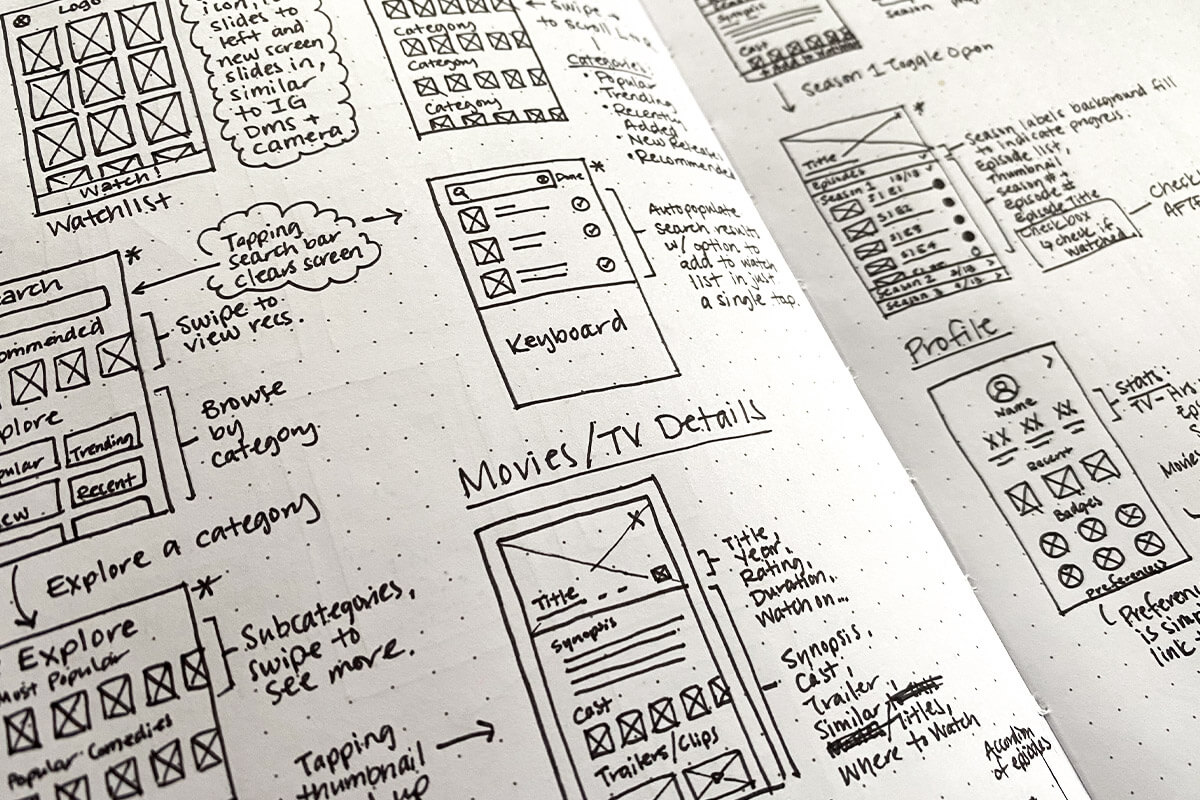 Logo
Watch!
Watchlist
slides to
left and
new screen
slides in,
similar
to IG
DMs +
camera
Category
Category
Category
swipe
to scroll
Categories:
• Popular
• Trending
• Recently
Added
• New Releases
• Recommended
Tapping
search bar
clears screen
Swipe to
view recs.
Trending
Recent
Browse
by
category
Explore a category
Explore
Most Popular
Popular Comedies
Subcategories,
swipe to
see more.
Tapping
thumbnail
Done
Keyboard
Autopopulate
search results
w/ option to
add to watch
list in just
a single tap.
Movies/TV Details
Title
Synopsis
Cast
Trailers/Clips
Title,
Year,
Rating,
Duration,
Watch on...
Synopsis,
Cast,
Trailer,
Similar
Titles,
Where to Watch
of episodes
Synopsis
Cast
Season 1 Toggle Open
Title
Episodes
Season 1 10/13
S1 E1
S1 E2
S1 E3
S1 E4
Season 2
Season 3
Season labels background fill
to indicate progress.
Episode list,
Thumbnail
Season #
Episode #
Episode Title
Check box
↳ check if
watched
Profile
Name
XX XX XX
Recent
Badges
Preferences
Stats:
Movies
is
link